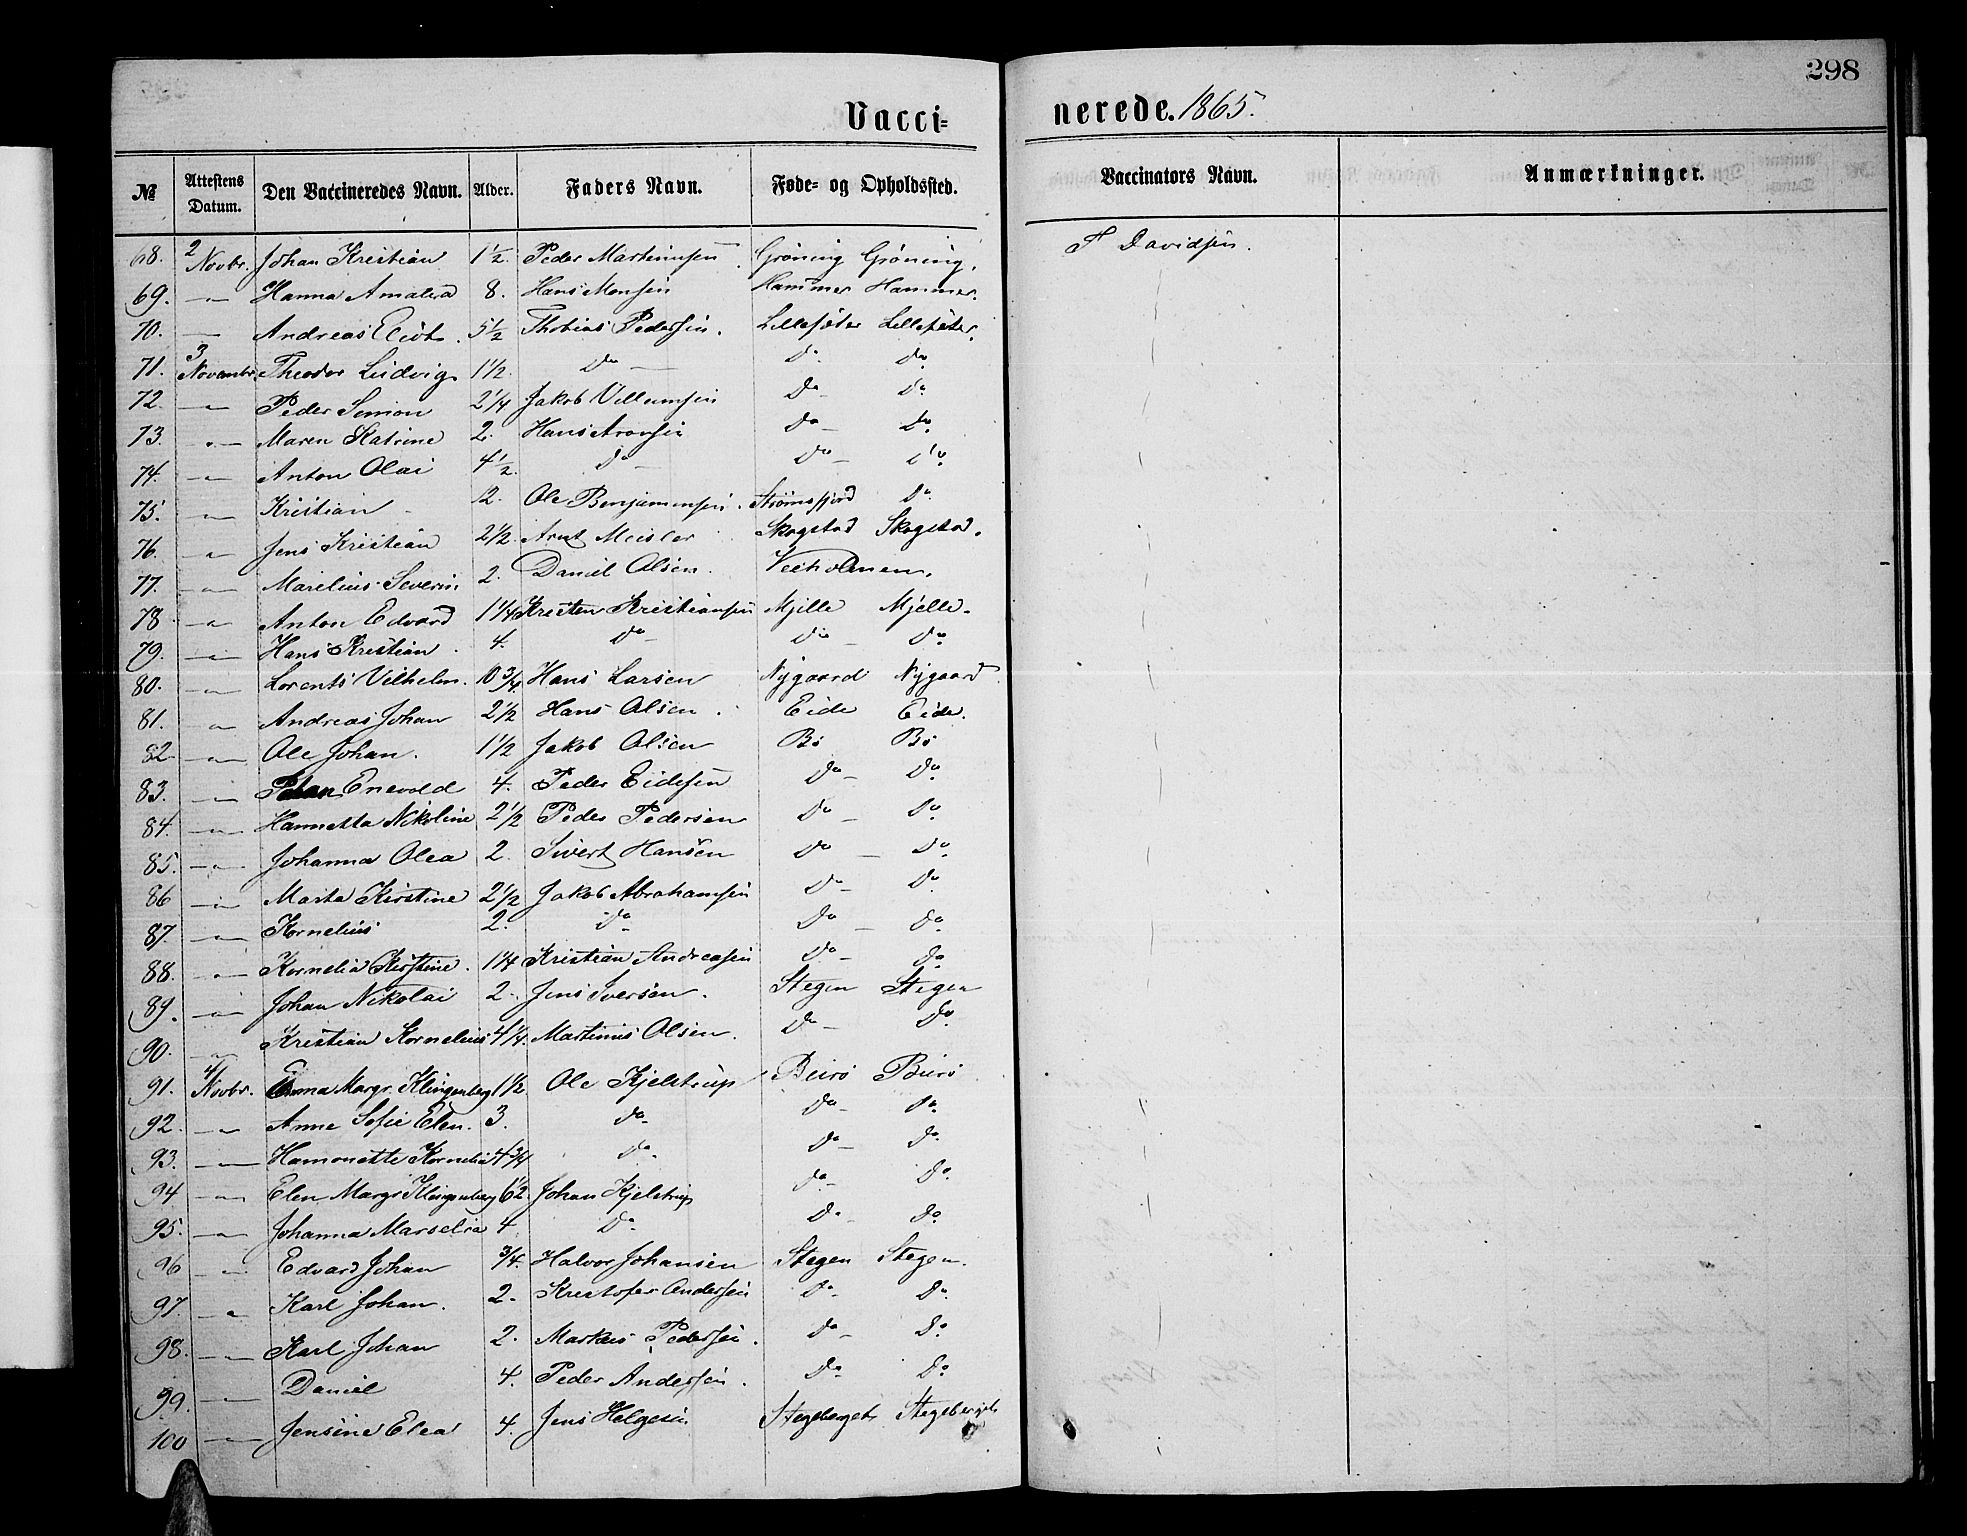 298
Vacci= nerede. 1865.
№ Attestens Datum. Den Vaccineredes Navn. Alder. Faders Navn. Føde- og Opholdssted. Vaccinators Navn. Anmærkninger.
68. 2 Novbr. Johan Kristian 1½. Peder Martinusen Gröning Gröning. F Davidsen.
69. — Hanna Amalia 8. Hans Monsen Hammer Hammer.
70. — Andreas 5½ Thobias Pedersen. Lillesæter Lillesæter.
71. 3 Novembr. Theodor Ludvig 1½. Do — Do. Do.
72. — Peder Simon 2¼ Jakob Villumsen Do — Do.
73. — Maren Katrine 2. Hans Aronsen Do — Do.
74. — Anton Olai 4½. Do — Do — Do.
75. — Kristian 12. Ole Benjaminsen. Strömsfjord Do.
76. — Jens Kristian 2½. Arnt Meisler Skogstad Skogstad.
77. — Marelius Severin 2. Daniel Olsen. Veiholmen.
78 — Anton Edvard 1¼ Kristen Kristiansen Mjelle Mjelle.
79. — Hans Kristian. 4. Do — Do — Do.
80. — Lorents Vilhelm. 10¾. Hans Larsen Nygaard Nygaard.
81. — Andreas Johan 2½ Hans Olsen. Eide Eide.
82 — Ole Johan. 1½ Jakob Olsen Bö Bö
83. — Enevold 4. Peder Eidesen Do — Do.
84. — Hannetta Nikoline 2½ Peder Pedersen Do — Do.
85. — Johanna Olea 2. Sivert Hansen Do — Do.
86 — Marta Kirstine 2½ Jakob Abrahamsen Do — Do.
87. — Kornelius 2. Do Do — Do.
88. — Kornelia Kirstine. 1¼ Kristian Andreasen Do — Do.
89. — Johan Nikolai 2. Jens Iversen. Stegen Stegen
90. — Kristian Kornelius 4¼. Martinus Olsen. Do — Do.
91. 4 Novbr. Emma Margr. Klingenberg 1½ Ole Kjelstrup
92. — Anne Sofie Elen. 3. Do. Do — Do.
93. — Hamonette Kornelia 4¾ Do. Do — Do.
94 — Elen Margr Klingenberg 6½. Johan Kjelstrup Do — Do.
95. — Johanna Marselia 4 Do. Do — Do.
96 — Edvard Johan ¾. Halvor Johansen Stegen Stegen.
97. — Karl Johan. 2. Kristofer Andersen Do — Do.
98. — Karl Johan 2. Markus Pedersen. Do — Do.
99. — Daniel 4. Peder Andersen. Do — Do.
100 — Jensine Elea 4. Jens Helgesen Stegeberget Stegeberget